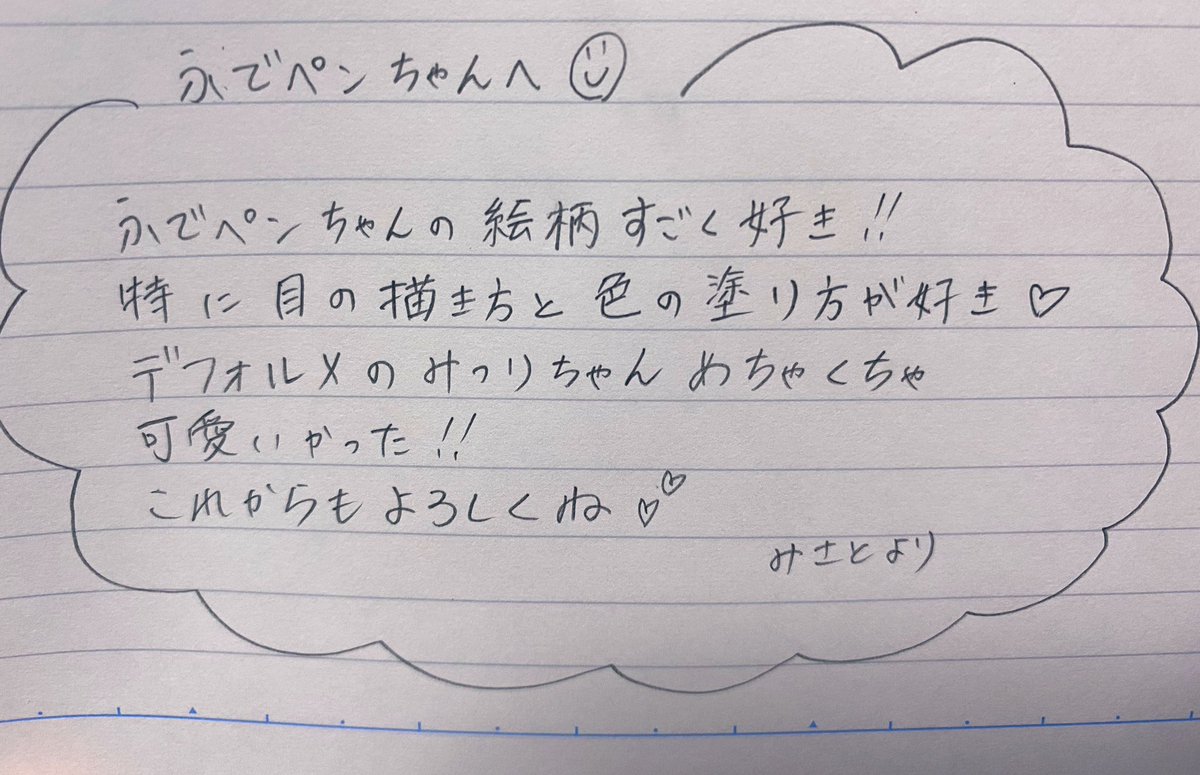 ふでペンちゃんへ
ふでペンちゃんの絵柄すごく好き!!
特に目の描き方と色の塗り方が好き♡
デフォルメのみつりちゃんめちゃくちゃ
可愛いかった!!
これからもよろしくね♡♡
みさとより